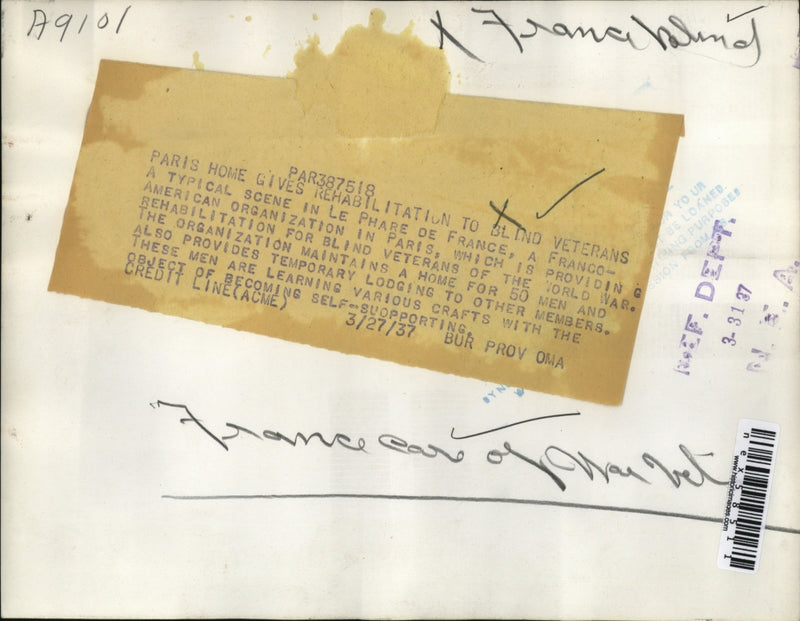 A9101
X France Blind
PAR387518
PARIS HOME GIVES REHABILITATION TO BLIND VETERANS
A TYPICAL SCENE IN LE PHARE DE FRANCE, A FRANCO-
AMERICAN ORGANIZATION IN PARIS, WHICH IS PROVIDIN G
REHABILITATION FOR BLIND VETERANS OF THE WORLD WAR.
THE ORGANIZATION MAINTAINS A HOME FOR 50 MEN AND
ALSO PROVIDES TEMPORARY LODGING TO OTHER MEMBERS.
THESE MEN ARE LEARNING VARIOUS CRAFTS WITH THE
OBJECT OF BECOMING SELF-SUOPPORTING.
CREDIT LINE(ACME)
3/27/37 BUR PROV OMA
YOUR
BE LOANED
PURPOSES
REF. DEPT.
3-31 37
N. E. A.
France care of War Vet
nex58511